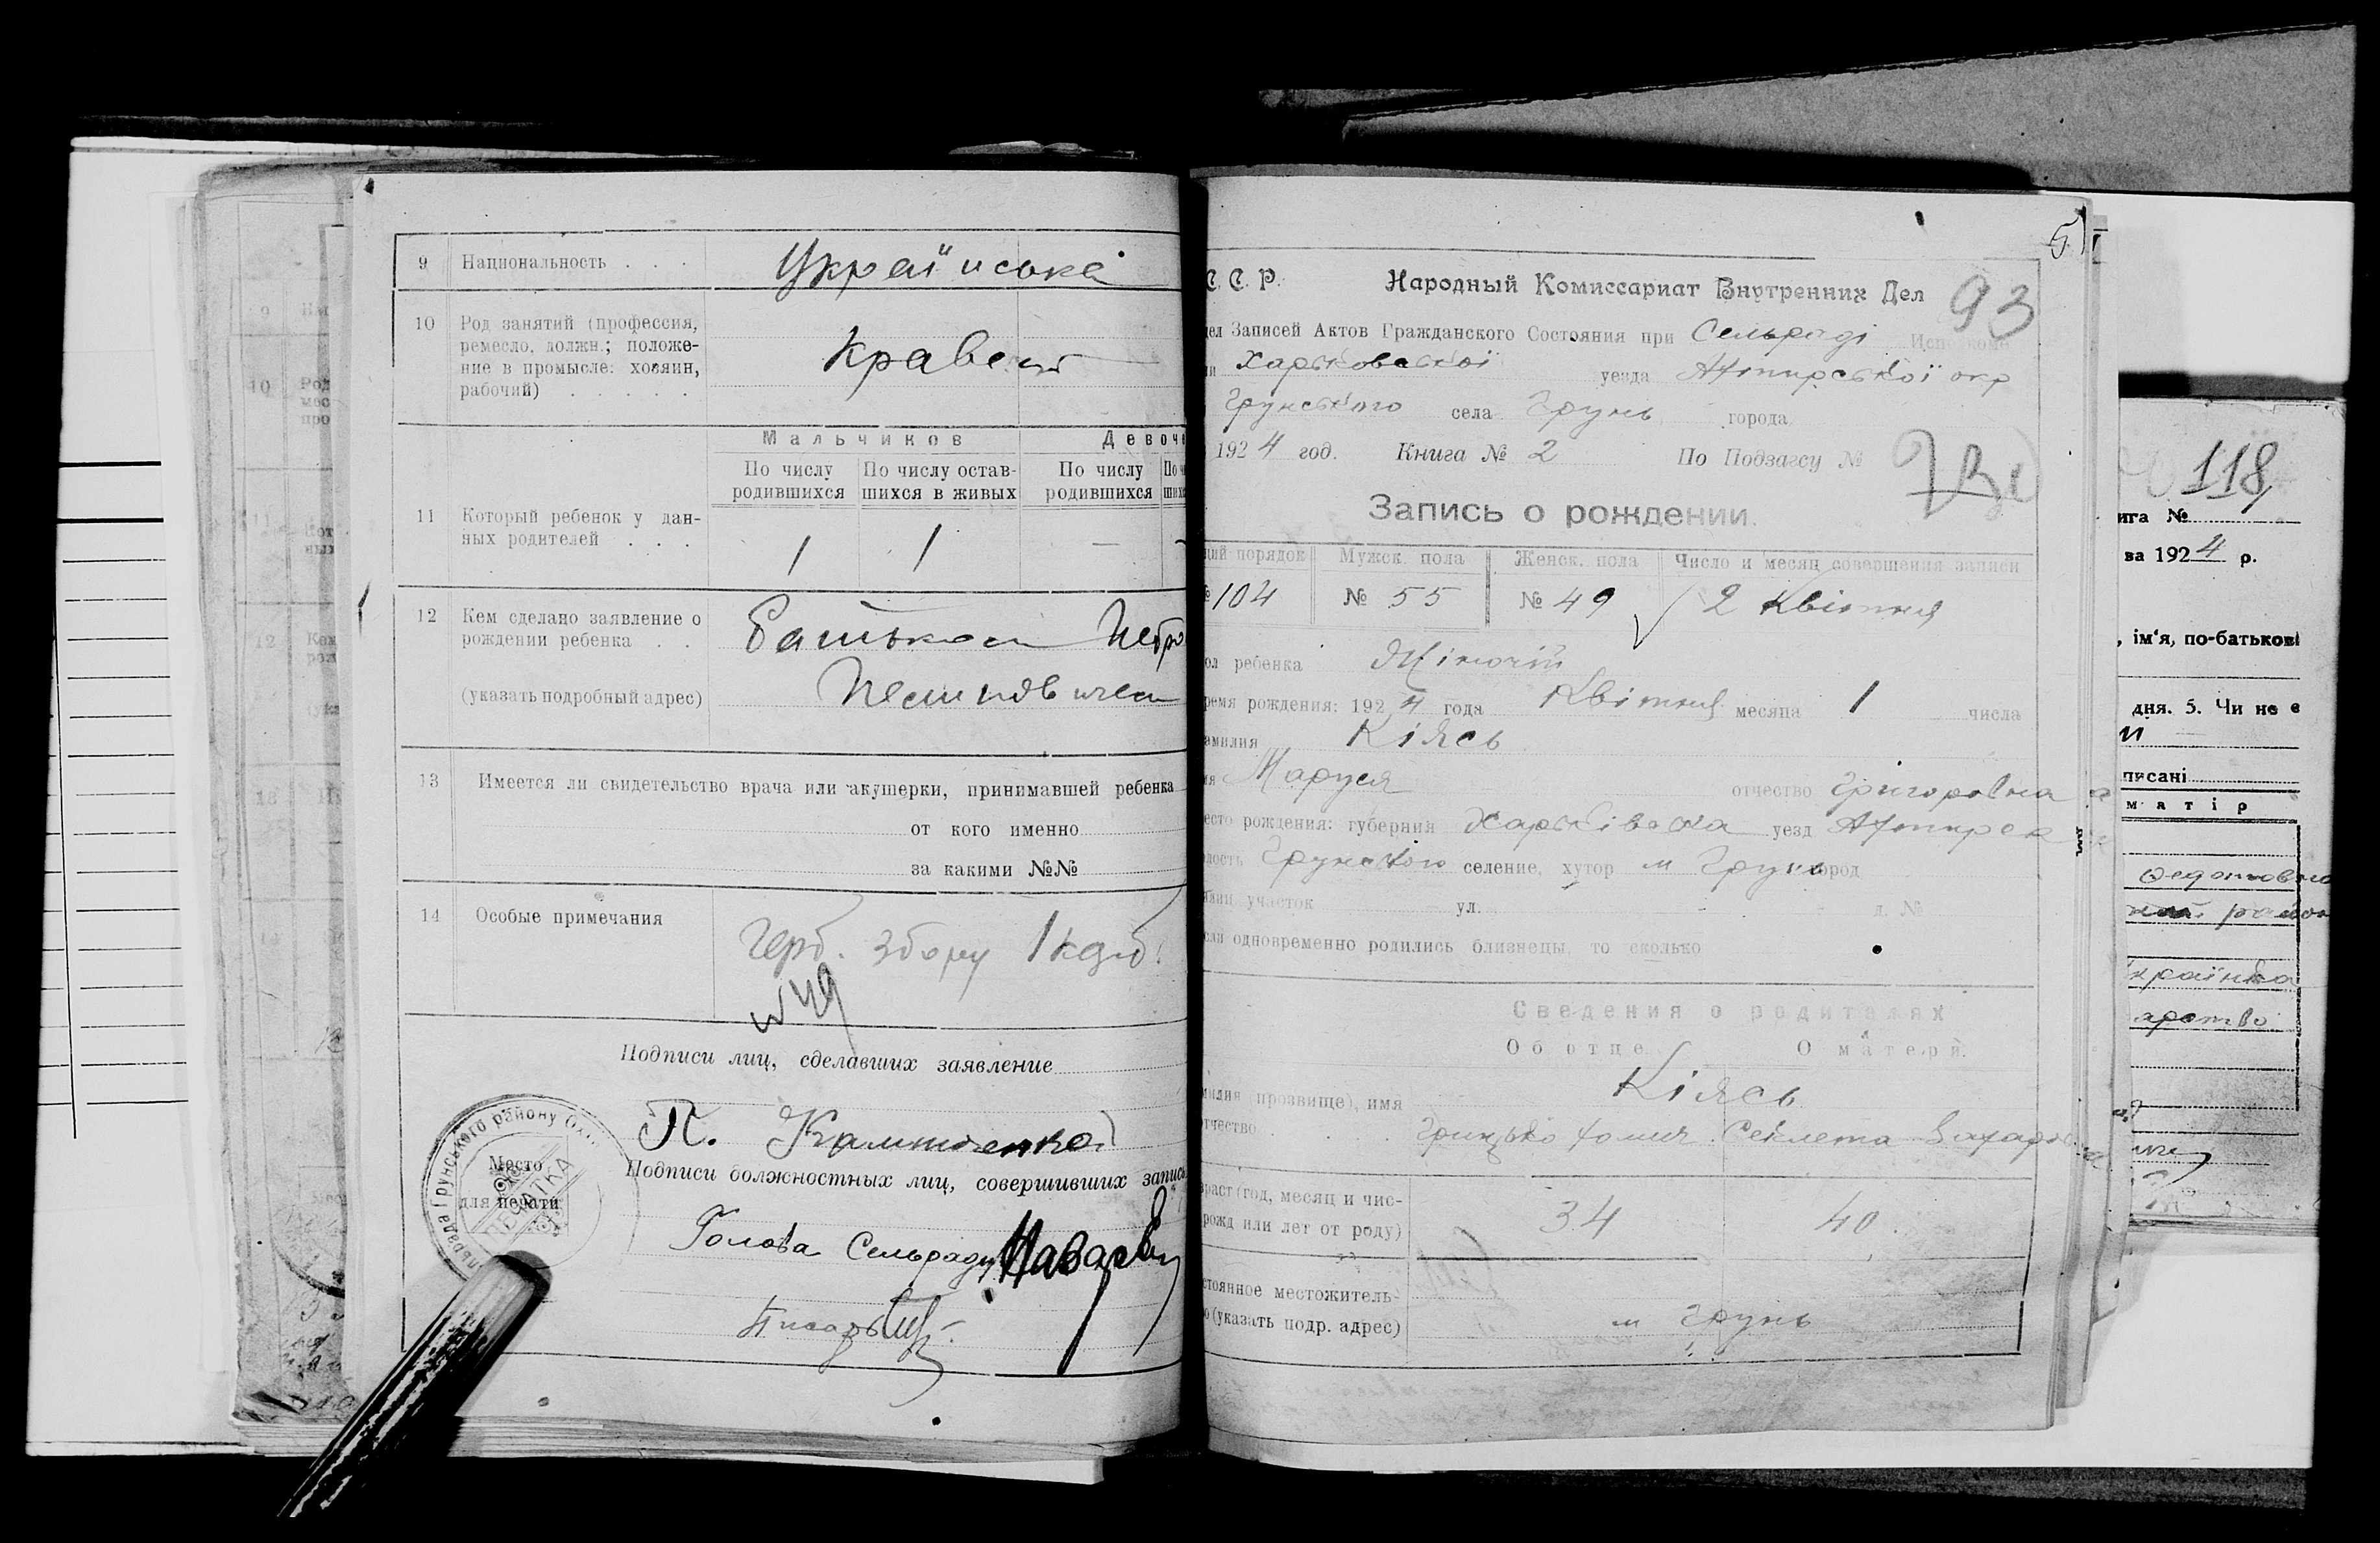 9 Национальность . . . Українська
10 Род занятий (профессия,
ремесло, должн.; положе-
ние в промысле: хозяин,
рабочий) . . . . .
Кравець
Мальчиков Девоче
По числу По числу остав- По числу По чи
родившихся шихся в живых родившихся ших
11 Который ребенок у дан-
ных родителей . . .
1 1 —
12 Кем сделано заявление о
рождении ребенка . .
Батьком Петро
(указать подробный адрес)
13 Имеется ли свидетельство врача или акушерки, принимавшей ребенка
от кого именно
за какими №№
14 Особые примечания
Герб. збору 1 карб.
N 49
Подписи лиц, сделавших заявление
П.
Место
для печати
ПЕЧАТКА
Грунського району
Подписи должностных лиц, совершивших запись
Голова Сельради
Писарь
51
С. С. Р. Народный Комиссариат Внутренних Дел 93
дел Записей Актов Гражданского Состояния при Сельраді Исполкоме
ии Харьковської уезда Ахтирської окр
Грунського села Грунь города
1924 год. Книга № 2 По Подзагсу №
Запись о рождении.
щий порядок Мужск. пола Женск. пола Число и месяц совершения записи
№ 104 № 55 № 49 2 Квітня
ол ребенка Жіночій
ремя рождения: 1924 года Квітня месяца 1 числа
амилия Кіясь
мя Маруся отчество Григоровна
есто рождения: губерния Харьківська уезд Ахтирск
лость Грунського селение, хутор м Грунь город
участок ул. д. №
сли одновременно родились близнецы, то сколько
Сведения о родителях
Об отце О матери.
милия (прозвище), имя
отчество . . .
Кіясь
Грицько Хомич Секлета Захаров
зраст (год, месяц и чис-
рожд или лет от роду)
34 40.
стоянное местожитель-
о (указать подр. адрес)
м Грунь
118
ига №
за 1924 р.
, ім‘я, по-батькові
дня. 5. Чи не є
писані
матір
Федотовна
країнка
арство